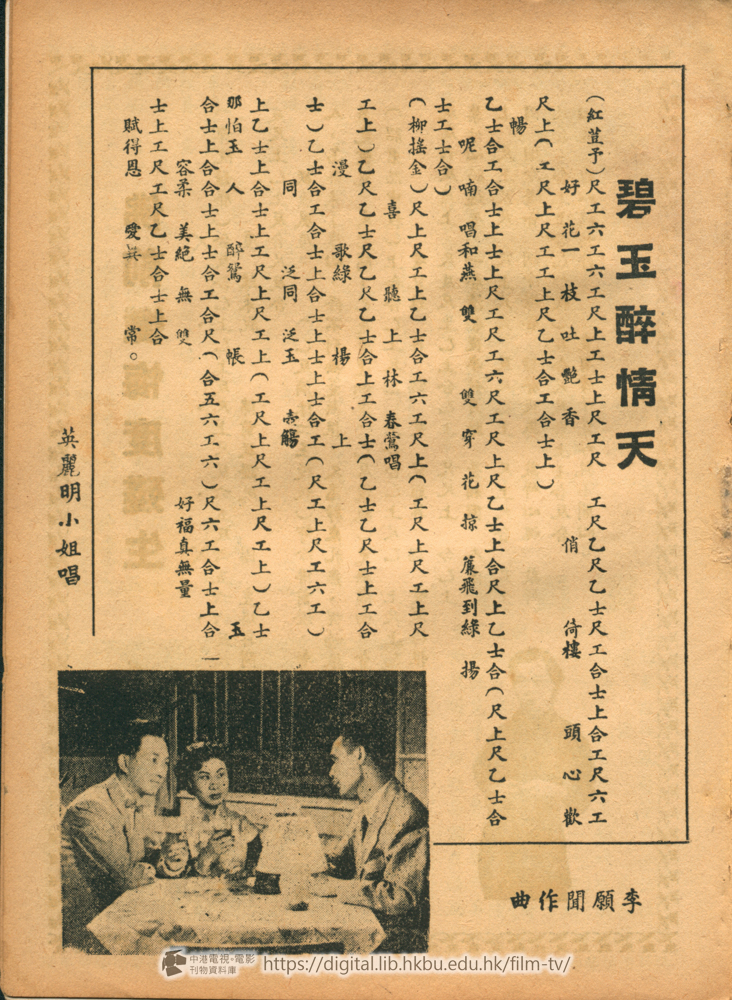 碧玉醉情天
(紅荳予)尺工六工六工尺上工士上尺工尺 工尺乙尺乙士尺工合士上合工尺六工
好花一枝吐艷香 俏 倚樓 頭心歡
尺上(工尺上尺工工上尺乙士合工合士上)
暢
乙士合工合士上士上尺工尺工六尺工尺上尺乙士上合尺上乙士合(尺上尺乙士合
呢喃唱和燕雙 雙穿花掠簾飛到綠揚
士工士合)
(柳搖金)尺上尺工上乙士合工六工尺上(工尺上尺工上尺
喜聽上林春鶯唱
工上)乙尺乙士尺乙尺乙士合上工合士(乙士乙尺士上工合
漫歌綠楊上
士)乙士合工合士上合士上士上士合工(尺工上尺工六工)
同泛同泛玉 觴
上乙士上合士上工尺上尺工上(工尺上尺工上尺工上)乙士
那怕玉人醉鴛帳 玉
合士上合合士上士合工合尺(合五六工六)尺六工合士上合一
容柔美絕無雙 好福真無量
士上工尺工尺乙士合士上合
賦得恩愛 常。
英麗明小姐唱
李願聞作曲
中港電視·電影
刊物資料庫
https://digital.lib.hkbu.edu.hk/film-tv/